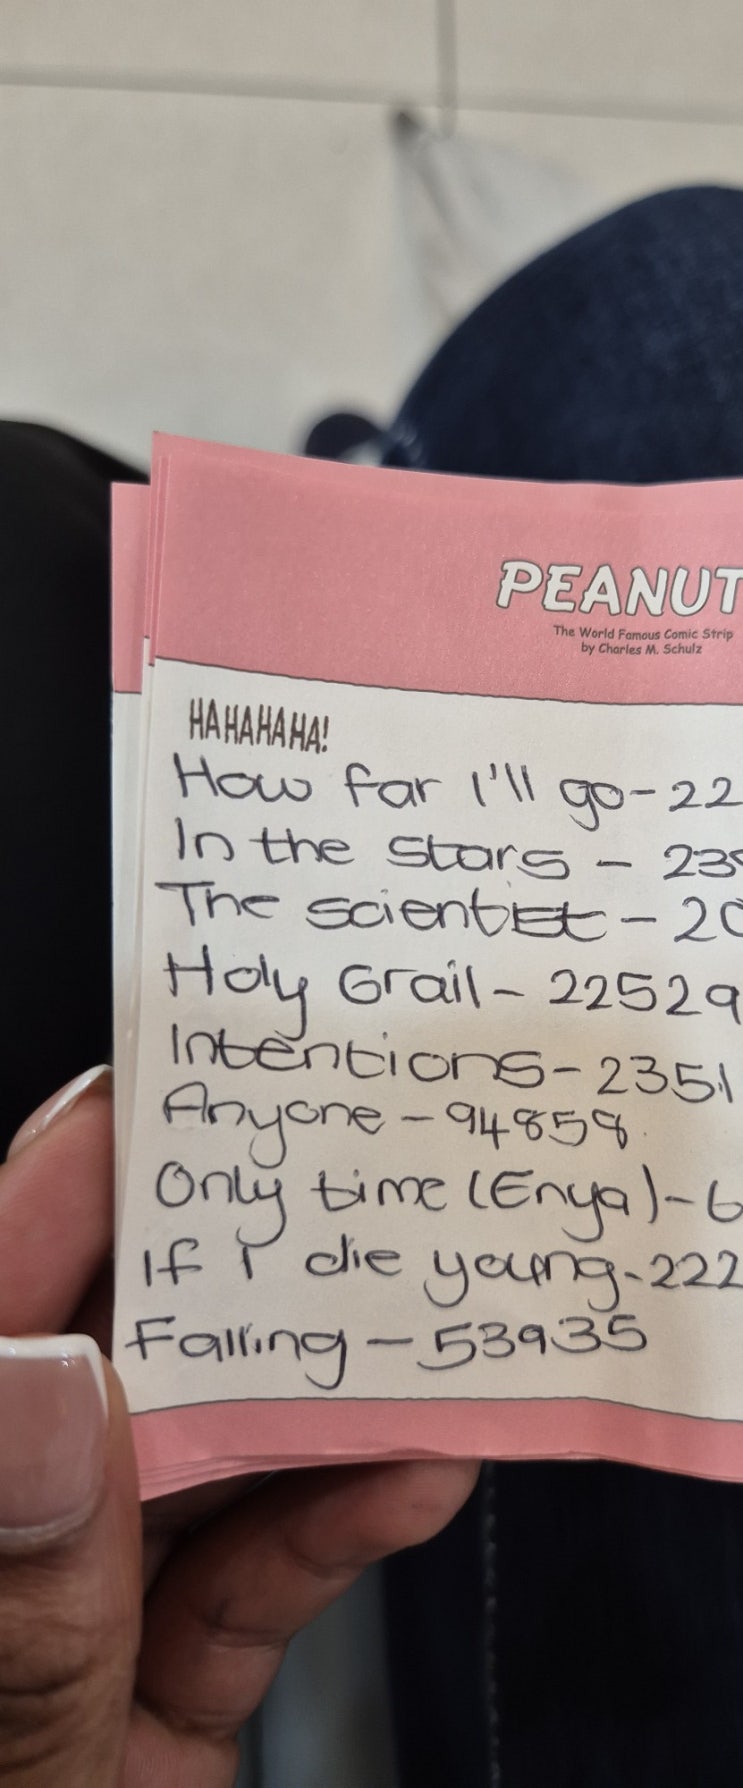 PEANUT
The World Famous Comic Strip
by Charles M. Schulz
HAHAHAHA!
How far I'll go-22
In the stars - 239
The scientist - 20
Holy Grail - 22529
Intentions - 2351
Anyone - 94858
Only time (Enya) - 6
If I die young-222
Falling - 53935